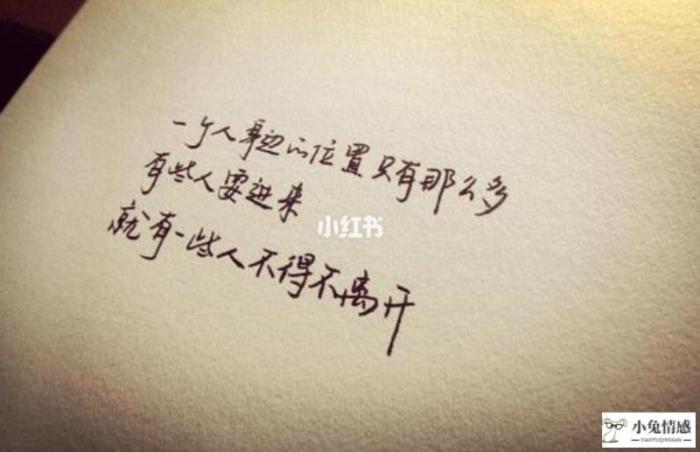 一个人身边的位置只有那么多
有些人要进来
就有一些人不得不离开
小红书
小兔情感
XIAOTUQINGGAN